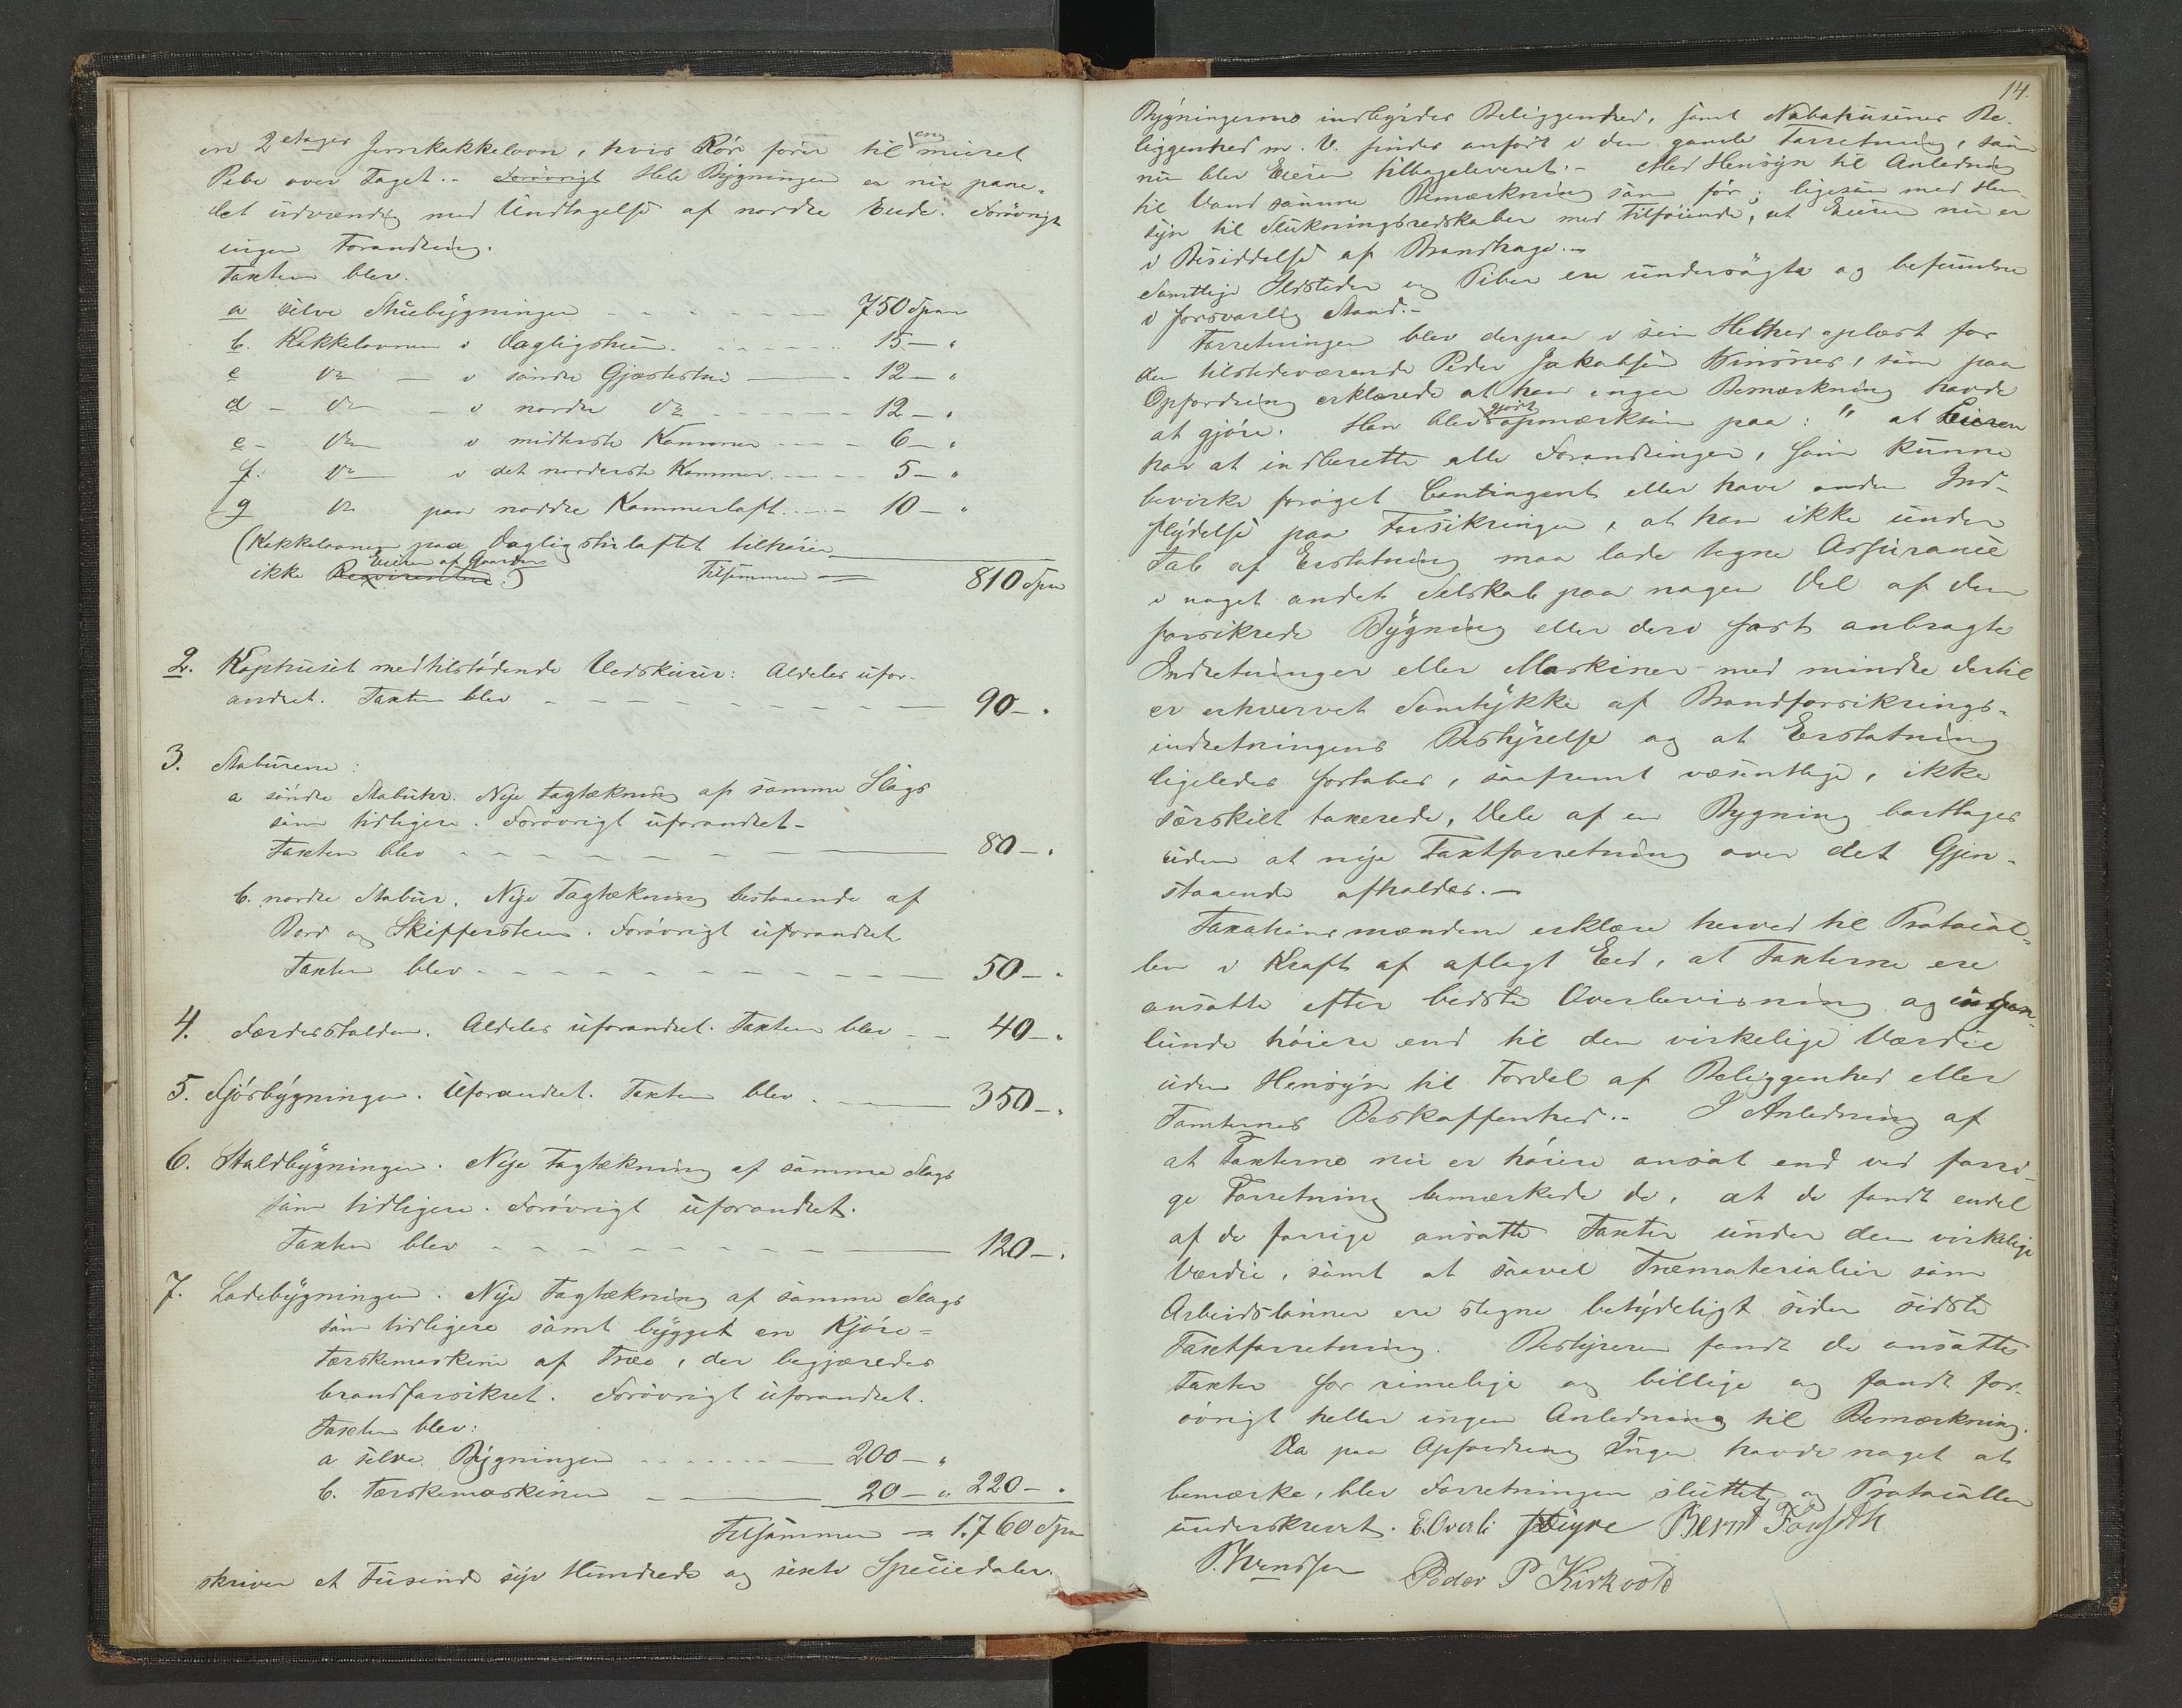 en 2 etages Jernkakkelovn, hvis Rør fører til en muret
Pibe over Taget. - Forøvrigt Hele Bygningen er nu pane-
let udvendig med Undtagelse af nordre Ende. Forøvrigt
ingen Forandring.
Taxten blev.
a selve Stuebygningen - - - - 750 Spd
b. Kakkelovnen i Dagligstuen - - - 15 - "
c Do - i søndre Gjæstestue - 12 - "
d - do - i nordre do - - - 12 - "
e - Do i midterste Kammer - - - 6 - "
f. Do i det norderste Kammer - - - 5 - "
g do paa nordre Kammerloft - - - 10 - "
(Kakkelovnen paa Dagligstueloftet tilhører
ikke Reqvirenten Eieren af Gaarden.) Tilsammen = 810 Spd
2. Kophuset med tilstødende Vedskuur: Aldeles ufor-
andret. Taxten blev - - - 90 - "
3. Staburene:
a søndre Stabur. Nye Tagtækning af samme Slags
som tidligere. Forøvrigt uforandret -
Taxten blev - - - 80 - "
b. nordre Stabur. Nye Tagtækning bestaaende af
Bord og Skiffersteen. Forøvrigt uforandret
Taxten blev - - - 50 - "
4. Færdesstalden. Aldeles uforandret. Taxten blev - - 40 - "
5. Fjøsbygningen. Uforandret. Taxten blev - 350 - "
6. Staldbygningen. Nye Tagtækning af samme Slags
som tidligere. Forøvrigt uforandret.
Taxten blev - - - 120 - "
7. Ladebygningen. Nye Tagtækning af samme Slags
som tidligere samt bygget en Kjøre-
Tærskemaskine af Træe, der begjæredes
brandforsikret. Forøvrigt uforandret.
Taxten blev:
a selve Bygningen - - - 200 - "
b. Tærskemaskinen - 20 - " 220 - "
Tilsammen = 1.760 Spd
skriver et Tusinde syv Hundrede og sexti Speciedaler.
14.
Bygningernes indbyrdes Beliggenhed, samt Nabohusenes Be-
liggenhed m. V. findes anført i den gamle Forretning, som
nu blev Eieren tilbageleveret. - Med Hensyn til Anledning
til Vand samme Bemærkning som før; ligesom med Hen-
syn til Slukningsredskaber med Tilføiende, at Eieren nu er
i Besiddelse af Brandhage. -
Samtlige Ildsteder og Piber ere undersøgte og befundne
i forsvarlig Stand. -
Forretningen blev derpaa i sin Helhed oplæst for
den tilstedeværende Peder Jakobsen, som paa
Opfordring erklærede at han ingen Bemærkning havde
at gjøre. Han blev gjort opmærksom paa: " at Eieren
har at indberette alle Forandringer, som kunne
bevirke forøget Contingent eller have anden Ind-
flydelse paa Forsikringen, at han ikke under
Tab af Erstatning maa lade tegne Assurance
i noget andet Selskab paa nogen Del af den
forsikrede Bygning eller deri fast anbragte
Indretninger eller Maskiner med mindre dertil
er erhvervet Samtykke af Brandforsikrings-
indretningens Bestyrelse og at Erstatning
ligeledes fortabes, saafremt væsentlige, ikke
særskilt taxerede, Dele af en Bygning borttages
uden at nye Taxtforretning over det Gjen-
staaende afholdes. -
Taxationsmændene erklære herved til Protocol-
len i Kraft af aflagt Eed, at Taxterne ere
ansatte efter bedste Overbevisning og ingen-
lunde høiere end til den virkelige Værdie
uden Hensyn til Fordel af Beliggenhed eller
Tomternes Beskaffenhed. - I Anledning af
at Taxterne nu er høiere ansat end ved forri-
ge Forretning bemærkede de, at de fandt endel
af de forrige ansatte Taxter under den virkelige
Værdie, samt at saavel Træmaterialier som
Arbeidslønner ere stegne betydeligt siden sidste
Taxtforretning. Bestyreren fandt de ansatte
Taxter for rimelige og billige og fandt for-
øvrigt heller ingen Anledning til Bemærkning.
Da paa Opfordring Ingen havde noget at
bemærke, blev Forretningen sluttet og Protocollen
underskrevet. E. Overli Bernt Fougth
Svendsen Peder P Kirkvold